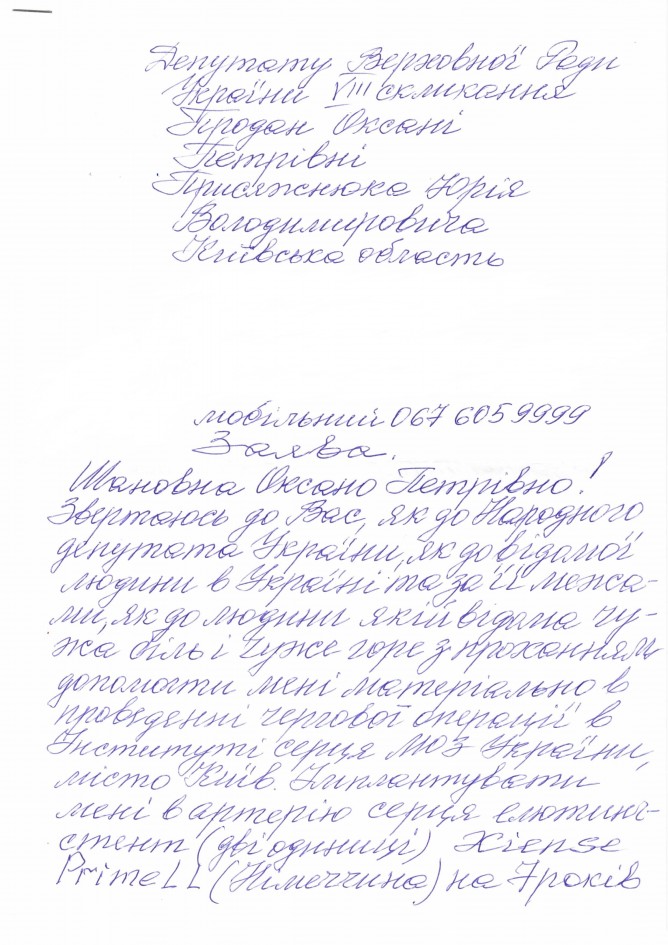 Депутату Верховної Ради
України VIII скликання
Продан Оксані
Петрівні
Присяжнюка Юрія
Володимировича
Київська область
мобільний 067 605 9999
Заява.
Шановна Оксано Петрівно!
Звертаюсь до Вас, як до Народного
депутата України, як до відамої
людини в Україні та за її межа-
ми, як до людини якій відама чу-
жа біль і чуже горе з проханням
допомогти мені матеріально в
проведенні чергової операції в
Інституті серця МОЗ України,
місто Київ. Імплантувати
мені в артерію серця елютинг-
стент (дві одиниці) Xiense
Prime LL (Німеччина) на 7 років